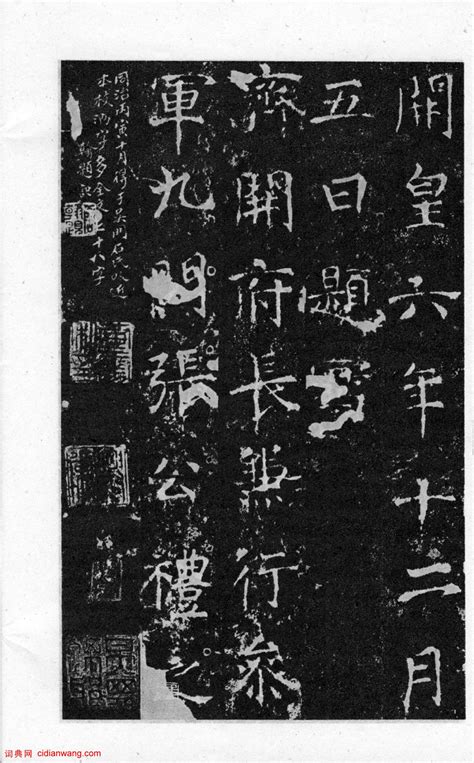 開皇六年十二月
五日題寫
齊開府長兼行叅
軍九門張公禮之
同治丙寅十月得于吳門石氏以近
本校字多全文二十八字
題記
词典网 cidianwang.com